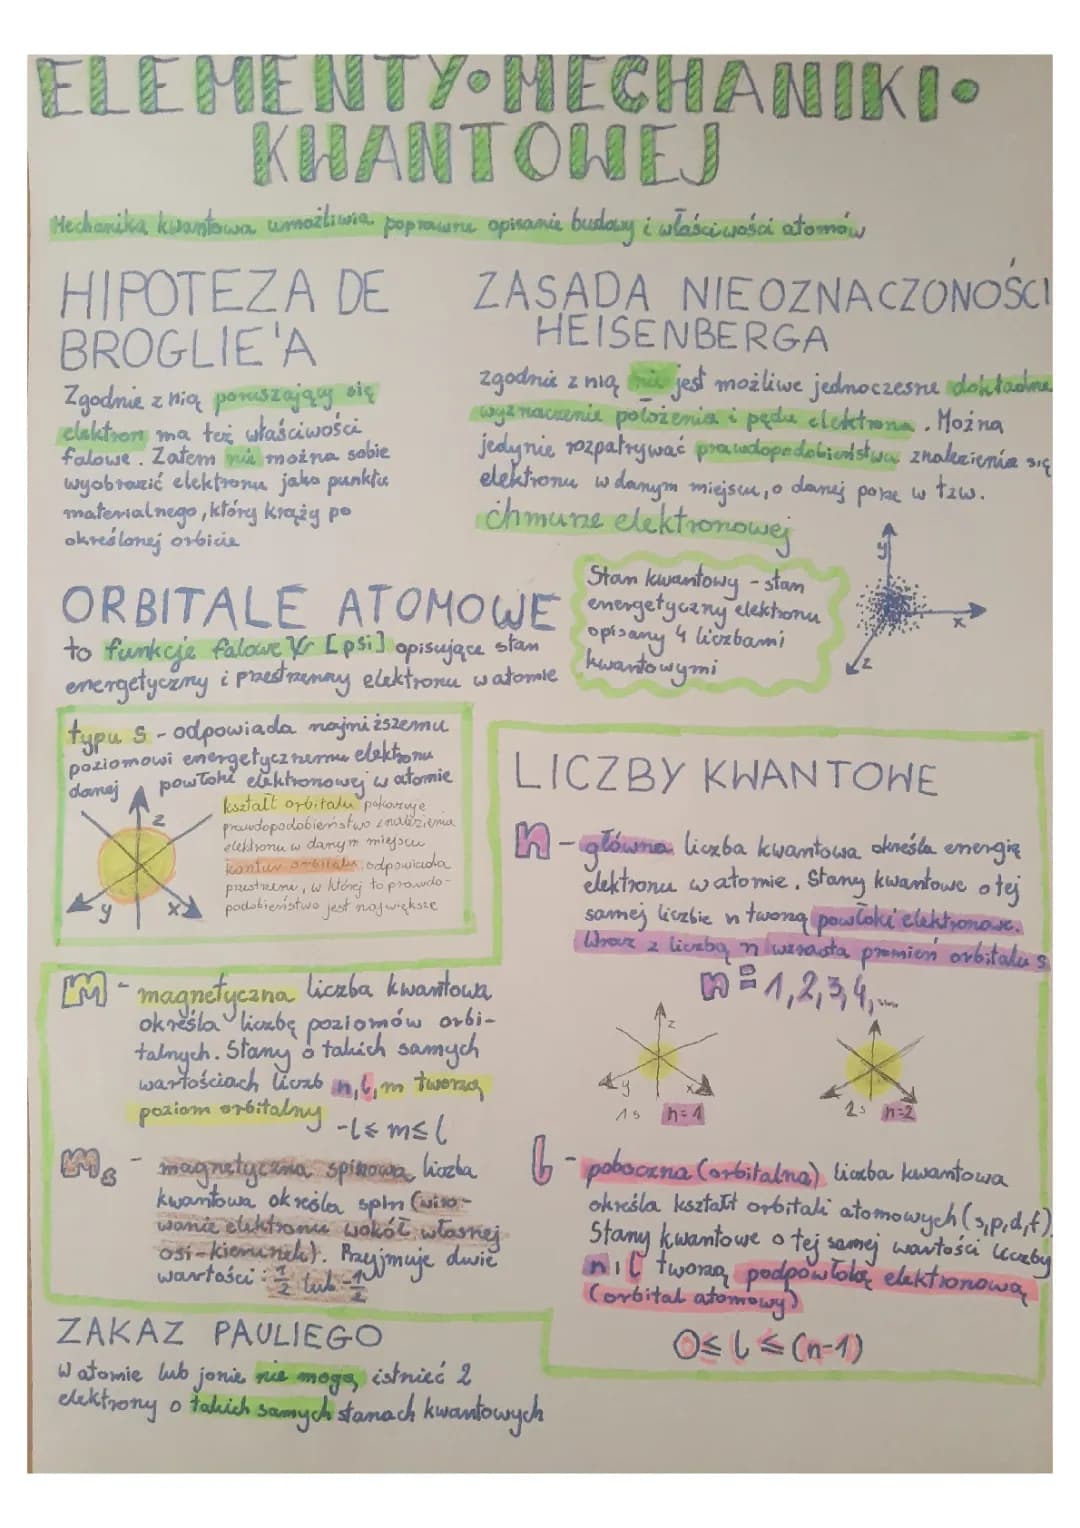 ELEMENTY•MECHANIKI•
KWANTOWEJ
Mechanika kwantowa umożliwia poprawne opisanie budowy i właściwości atomów
HIPOTEZA DE
BROGLIE'A
Zgodnie z nią poruszający się
elektron ma też właściwości
falowe. Zatem nie można sobie
wyobrazić elektronu jako punktu
materialnego, który krąży po
określonej orbicie
ZASADA NIEOZNACZONOŚCI
HEISENBERGA
zgodnie z nią nie jest możliwe jednoczesne dokładne
wyznaczenie położenia i pędu elektrona. Można
jedynie rozpatrywać prawdopodobieństwo znalezienia się
elektronu w danym miejscu, o danej porze w tzw.
chmurze elektronowej
y
x
z
Stan kwantowy - stan
energetyczny elektronu
opisany 4 liczbami
kwantowymi
ORBITALE ATOMOWE
to funkcje falowe Ψ [psi] opisujące stan
energetyczny i przestrzenny elektronu w atomie
typu s - odpowiada najniższemu
poziomowi energetycznemu elektronu
danej powłoki elektronowej w atomie
z
y
x
kształt orbitalu pokazuje
prawdopodobieństwo znalezienia
elektronu w danym miejscu
kontur orbitalu odpowiada
przestrzeni, w której to prawdo-
podobieństwo jest największe
LICZBY KWANTOWE
n - główna liczba kwantowa określa energię
elektronu w atomie. Stany kwantowe o tej
samej liczbie n tworzą powłoki elektronowe.
Wraz z liczbą n wzrasta promień orbitalu s
n = 1,2,3,4,....
z
y
x
1s n=1
2s n=2
l - poboczna (orbitalna) liczba kwantowa
określa kształt orbitali atomowych (s,p,d,f).
Stany kwantowe o tej samej wartości liczby
n i l tworzą podpowłokę elektronową
(orbital atomowy)
0≤ l ≤ (n-1)
m - magnetyczna liczba kwantowa
określa liczbę poziomów orbi-
talnych. Stany o takich samych
wartościach liczb n,l,m tworzą
poziom orbitalny
-l ≤ m ≤ l
ms - magnetyczna spinowa liczba
kwantowa określa spin (wiro-
wanie elektronu wokół własnej
osi - kierunek). Przyjmuje dwie
wartości: 1/2 lub -1/2
ZAKAZ PAULIEGO
W atomie lub jonie nie mogą istnieć 2
elektrony o takich samych stanach kwantowych